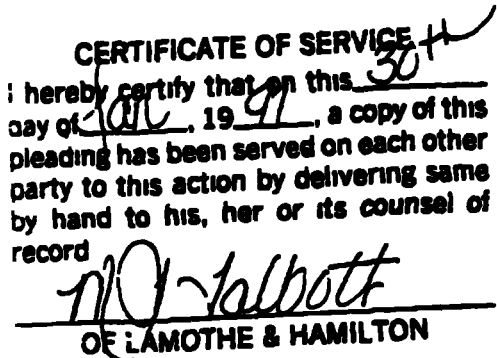 CERTIFICATE OF SERVICE
I hereby certify that on this 30th
day of Jan, 1991, a copy of this
pleading has been served on each other
party to this action by delivering same
by hand to his, her or its counsel of
record
Talbott
OF LAMOTHE & HAMILTON